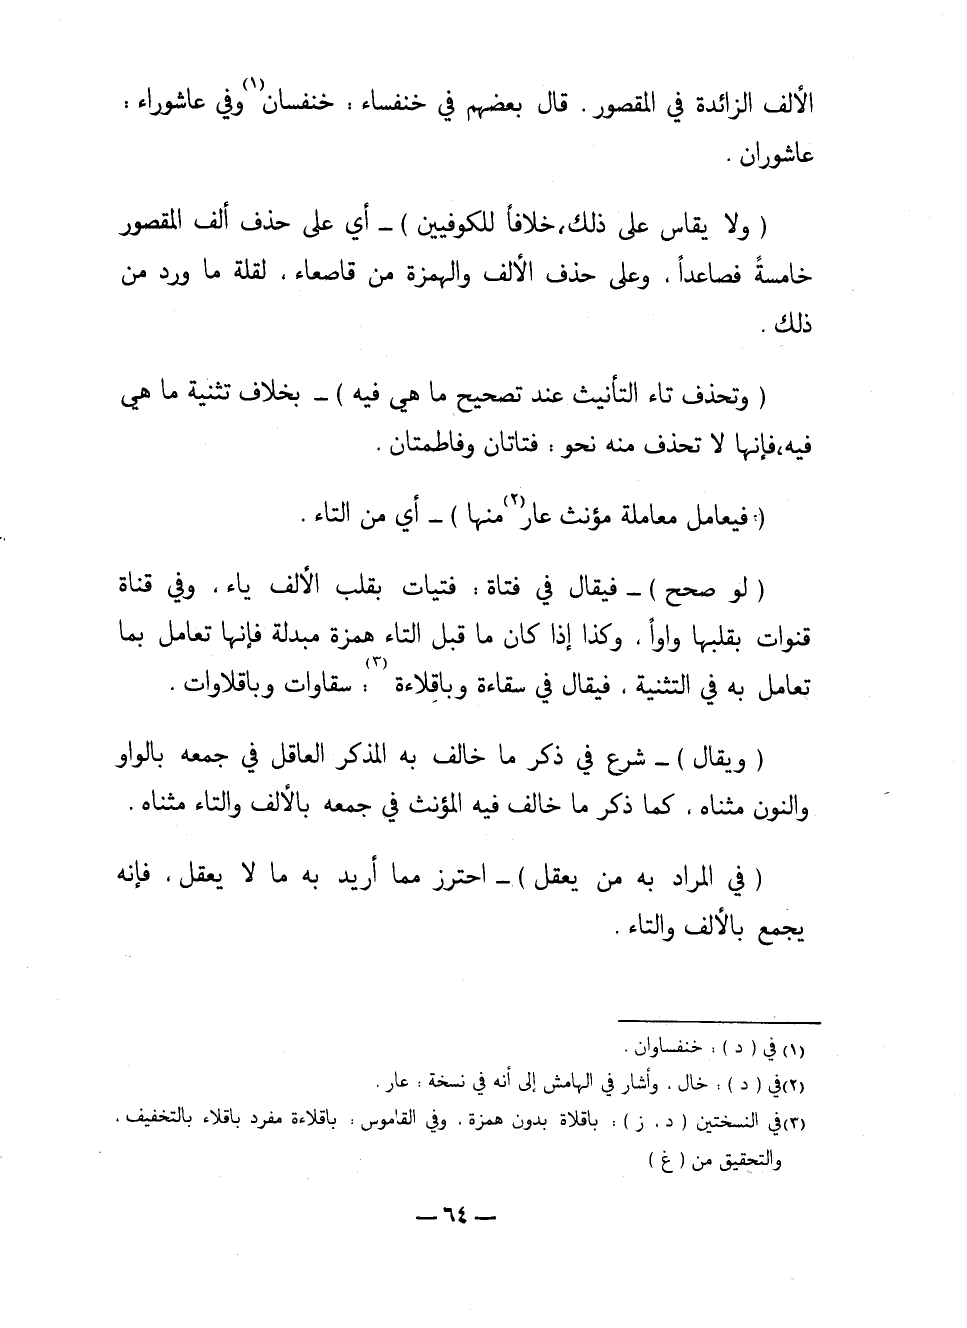 الألف الزائدة في المقصور . قال بعضهم في خنفساء : خنفسان(١) وفي عاشوراء :
عاشوران .
( ولا يقاس على ذلك، خلافاً للكوفيين ) ــ أي على حذف ألف المقصور
خامسةً فصاعداً ، وعلى حذف الألف والهمزة من قاصعاء ، لقلة ما ورد من
ذلك .
( وتحذف تاء التأنيث عند تصحيح ما هي فيه ) ــ بخلاف تثنية ما هي
فيه، فإنها لا تحذف منه نحو : فتاتان وفاطمتان .
(: فيعامل معاملة مؤنث عار(٢) منها ) ــ أي من التاء .
( لو صحح ) ــ فيقال في فتاة : فتيات بقلب الألف ياء ، وفي قناة
قنوات بقلبها واواً ، وكذا إذا كان ما قبل التاء همزة مبدلة فإنها تعامل بما
تعامل به في التثنية ، فيقال في سقاءة وباقلاءة (٣): سقاوات وباقلاوات .
( ويقال ) ــ شرع في ذكر ما خالف به المذكر العاقل في جمعه بالواو
والنون مثناه ، كما ذكر ما خالف فيه المؤنث في جمعه بالألف والتاء مثناه .
( في المراد به من يعقل ) ــ احترز مما أريد به ما لا يعقل ، فإنه
يجمع بالألف والتاء .
(١) في ( د ) : خنفساوان .
(٢) في ( د ) : خال ، وأشار في الهامش إلى أنه في نسخة : عار .
(٣) في النسختين ( د ، ز ) : باقلاة بدون همزة ، وفي القاموس : باقلاءة مفرد باقلاء بالتخفيف ،
والتحقيق من ( غ )
ــ ٦٤ ــ